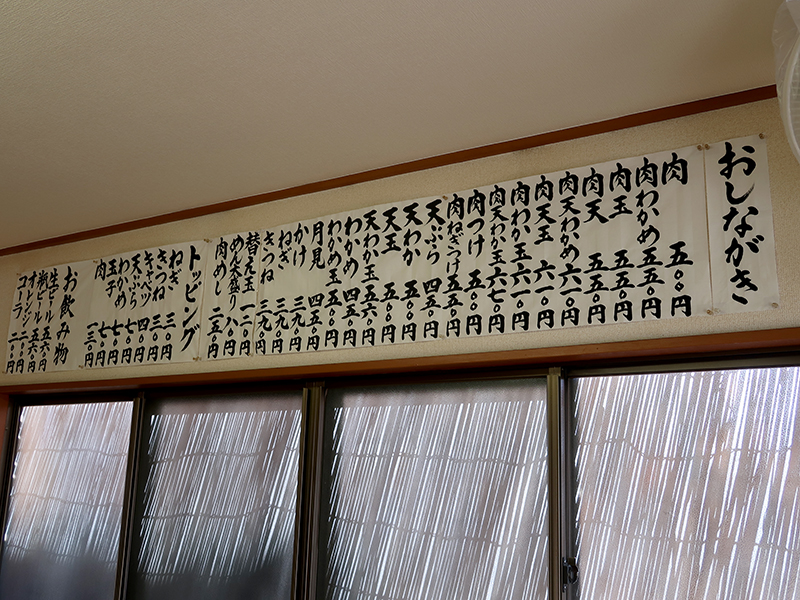 おしながき
肉 五〇〇円
肉わかめ 五五〇円
肉玉 五五〇円
肉天 五五〇円
肉天わかめ 六一〇円
肉天玉 六一〇円
肉わか玉 六一〇円
肉天わか玉 六七〇円
肉つけ 五〇〇円
肉ねぎつけ 五五〇円
天ぷら 四五〇円
天わか 五一〇円
天玉 五一〇円
天わか玉 五六〇円
わかめ 四五〇円
わかめ玉 五一〇円
月見 四五〇円
かけ 三九〇円
ねぎ 三九〇円
きつね 三九〇円
替え玉 一二〇円
めん大盛り 八〇円
肉めし 二五〇円
トッピング
ねぎ 三〇円
きつね 三〇円
キャベツ 四〇円
天ぷら 七〇円
わかめ 七〇円
玉子 七〇円
肉 一三〇円
お飲み物
生ビール 五六〇円
瓶ビール 五六〇円
オレンジ 二〇〇円
コーラ 二〇〇円